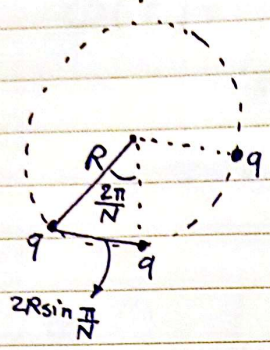 R
2π/N
q
q
q
2R sin π/N